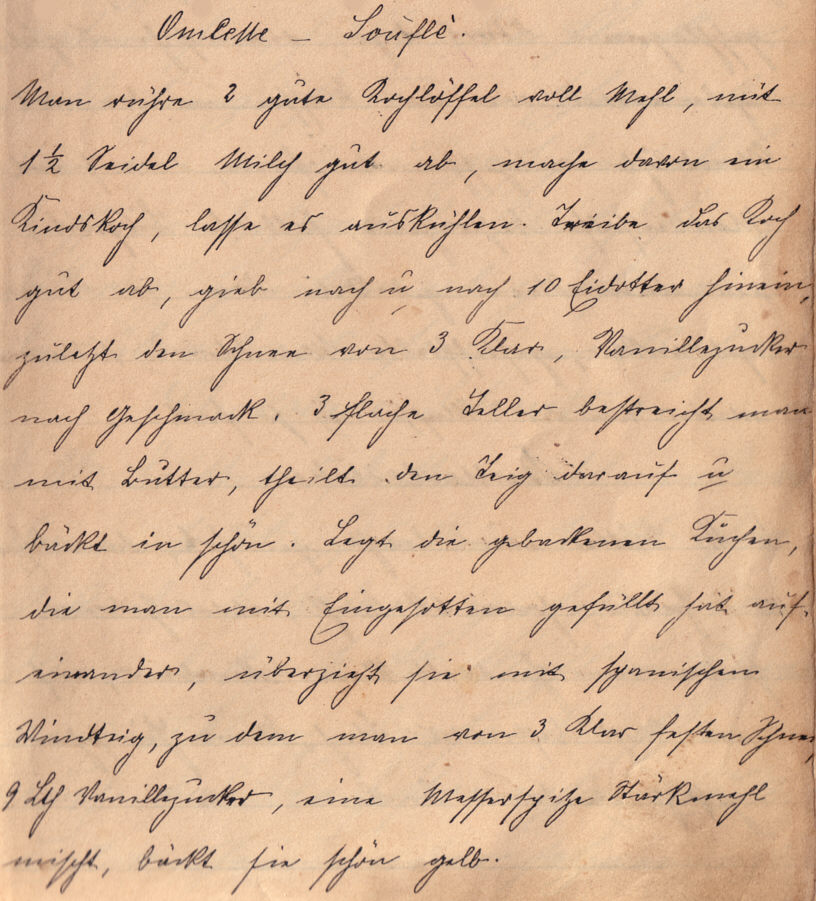 Omlette – Souflè.
Man rühre 2 gute Kochlöffel voll Mehl, mit
1 ½ Seidel Milch gut ab, mache davon ein
Kindskoch, lasse es auskühlen. Treibe das Koch
gut ab, gieb nach u nach 10 Eidotter hinein,
zuletzt den Schnee von 3 Klar, Vanillezucker
nach Geschmack. 3 flache Teller bestreicht man
mit Butter, theilt den Teig darauf u
bäckt in schön. Legt die gebackenen Kuchen,
die man mit Eingesotten gefüllt hat auf-
einander, überzieht sie mit spanischen
Windteig, zu dem man von 3 Klar festen Schnee,
9 Lth Vanillezucker, eine Messerspitze Stärkmehl
mischt, bäckt sie schön gelb.